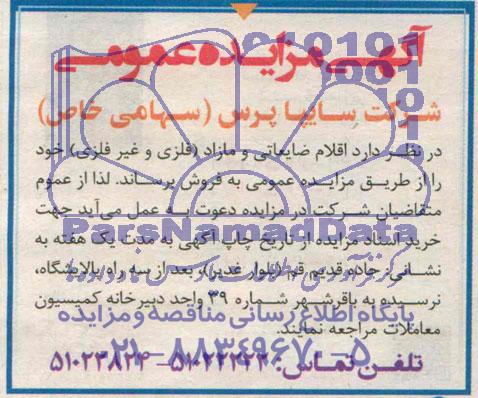 آگهی مزایده عمومی
شرکت سایپا پرس (سهامی خاص)
در نظر دارد اقلام ضایعاتی و مازاد (فلزی و غیر فلزی) خود
را از طریق مزایده عمومی به فروش برساند. لذا از عموم
متقاضیان شرکت در مزایده دعوت به عمل می‌آید جهت
خرید اسناد مزایده از تاریخ چاپ آگهی به مدت یک هفته به
نشانی: جاده قدیم قم (بلوار غدیر)، بعد از سه راه پالایشگاه،
نرسیده به باقرشهر شماره ۳۹ واحد دبیرخانه کمیسیون
معاملات مراجعه نمایند.
تلفن تماس: ۵۱۰۲۲۲۲۴-۵۱۰۲۳۸۲۴
ParsNamadData
پایگاه اطلاع رسانی مناقصه و مزایده
۰۲۱-۸۸۳۴۹۶۷۰-۵